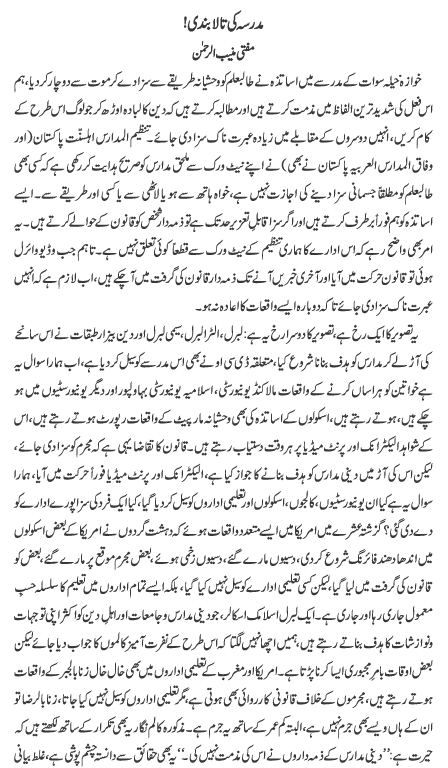 مدرسہ کی تالا بندی!
مفتی منیب الرحمٰن
خوازہ خیلہ سوات کے مدرسے میں اساتذہ نے طالبعلم کو وحشیانہ طریقے سے سزا دے کر موت سے دوچار کر دیا، ہم
اس فعل کی شدید ترین الفاظ میں مذمت کرتے ہیں اور مطالبہ کرتے ہیں کہ دین کا لبادہ اوڑھ کر جو لوگ اس طرح کے
کام کریں، انہیں دوسروں کے مقابلے میں زیادہ عبرت ناک سزا دی جائے۔ تنظیم المدارس اہلسنّت پاکستان (اور
وفاق المدارس العربیہ پاکستان نے بھی) نے اپنے نیٹ ورک سے ملحق مدارس کو صریح ہدایت کر رکھی ہے کہ کسی بھی
طالبعلم کو مطلقاً جسمانی سزا دینے کی اجازت نہیں ہے، خواہ ہاتھ سے ہو یا لاٹھی سے یا کسی اور طریقے سے۔ ایسے
اساتذہ کو ہم فوراً برطرف کرتے ہیں اور اگر سزا قابلِ تعزیر حد تک ہے تو ذمہ دار شخص کو قانون کے حوالے کرتے ہیں۔ یہ
امر بھی واضح رہے کہ اس ادارے کا ہماری تنظیم کے نیٹ ورک سے قطعاً کوئی تعلق نہیں ہے۔ تاہم جب ویڈیو وائرل
ہوئی تو قانون حرکت میں آیا اور آخری خبریں آنے تک ذمہ دار قانون کی گرفت میں آ چکے ہیں، اب لازم ہے کہ انہیں
عبرت ناک سزا دی جائے تاکہ دوبارہ ایسے واقعات کا اعادہ نہ ہو۔
یہ تصویر کا ایک رخ ہے، تصویر کا دوسرا رخ یہ ہے: لبرل، الٹرا لبرل، سیمی لبرل اور دین بیزار طبقات نے اس سانحے
کی آڑ لے کر مدارس کو ہدف بنانا شروع کیا، متعلقہ ڈی سی او نے بھی اس مدرسے کو سیل کر دیا ہے، اب ہمارا سوال یہ
ہے خواتین کو ہراساں کرنے کے واقعات مالاکنڈ یونیورسٹی، اسلامیہ یونیورسٹی بہاولپور اور دیگر یونیورسٹیوں میں ہو
چکے ہیں، ہوتے رہتے ہیں، اسکولوں کے اساتذہ کی بھی وحشیانہ مارپیٹ کے واقعات رپورٹ ہوتے رہتے ہیں، اس
کے شواہد الیکٹرانک اور پرنٹ میڈیا پر ہر وقت دستیاب رہتے ہیں۔ قانون کا تقاضا یہی ہے کہ مجرم کو سزا دی جائے،
لیکن اس کی آڑ میں دینی مدارس کو ہدف بنانے کا جواز کیا ہے، الیکٹرانک اور پرنٹ میڈیا فوراً حرکت میں آیا، ہمارا
سوال یہ ہے کیا ان یونیورسٹیوں، کالجوں، اسکولوں اور تعلیمی اداروں کو سیل کر دیا گیا، کیا ایک فرد کی سزا پورے ادارے کو
دے دی گئی؟ گزشتہ عشرے میں امریکا میں ایسے متعدد واقعات ہوئے کہ دہشت گردوں نے امریکا کے بعض اسکولوں
میں اندھا دھند فائرنگ شروع کر دی، دسیوں مارے گئے، دسیوں زخمی ہوئے، بعض مجرم موقع پر مارے گئے، بعض کو
قانون کی گرفت میں لیا گیا، لیکن کسی تعلیمی ادارے کو سیل نہیں کیا گیا، بلکہ ایسے تمام اداروں میں تعلیم کا سلسلہ حسبِ
معمول جاری رہا اور جاری ہے۔ ایک لبرل اسلامک اسکالر، جو دینی مدارس و جامعات اور اہلِ دین کو اکثر اپنی توجہات
و نوازشات کا ہدف بناتے رہتے ہیں، ہمیں اچھا نہیں لگتا کہ اس طرح کے نفرت آمیز کالموں کا جواب دیا جائے لیکن
بعض اوقات بامرِ مجبوری ایسا کرنا پڑتا ہے۔ امریکا اور مغرب کے تعلیمی اداروں میں بھی خال خال زنا بالجبر کے واقعات
ہوتے رہتے ہیں، مجرموں کے خلاف قانونی کارروائی بھی ہوتی ہے، مگر تعلیمی اداروں کو سیل نہیں کیا جاتا، زنا بالرضا تو
ان کے ہاں ویسے بھی جرم نہیں ہے، البتہ کم عمر کے ساتھ یہ جرم ہے۔ مذکورہ کالم نگار یہ بھی تکرار کے ساتھ لکھتے ہیں کہ
حیرت ہے: ’’دینی مدارس کے ذمہ داروں نے اس کی مذمت نہیں کی۔‘‘ یہ بھی حقائق سے دانستہ چشم پوشی ہے، غلط بیانی